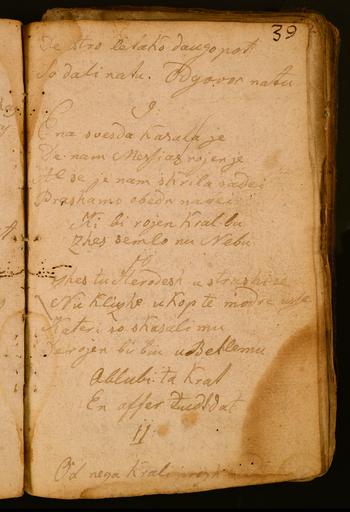 39
De stro letako daugo pot
So dati natu. Odgovor natu
9.
Ena svesda kasala je
De nam Messias rojen je
se je nam skrila sadei
Prashamo obedn
Ki bi rojen Kral bu
zhes semlo nu Nebu
10
zhes tu Herodesh
Nu klizhe ukop te modre
Kateri so skasali mu
de rojen bi biu u Betlemu
Ablubi ta Kral
En offer tudi dat
11
Od nega Krali